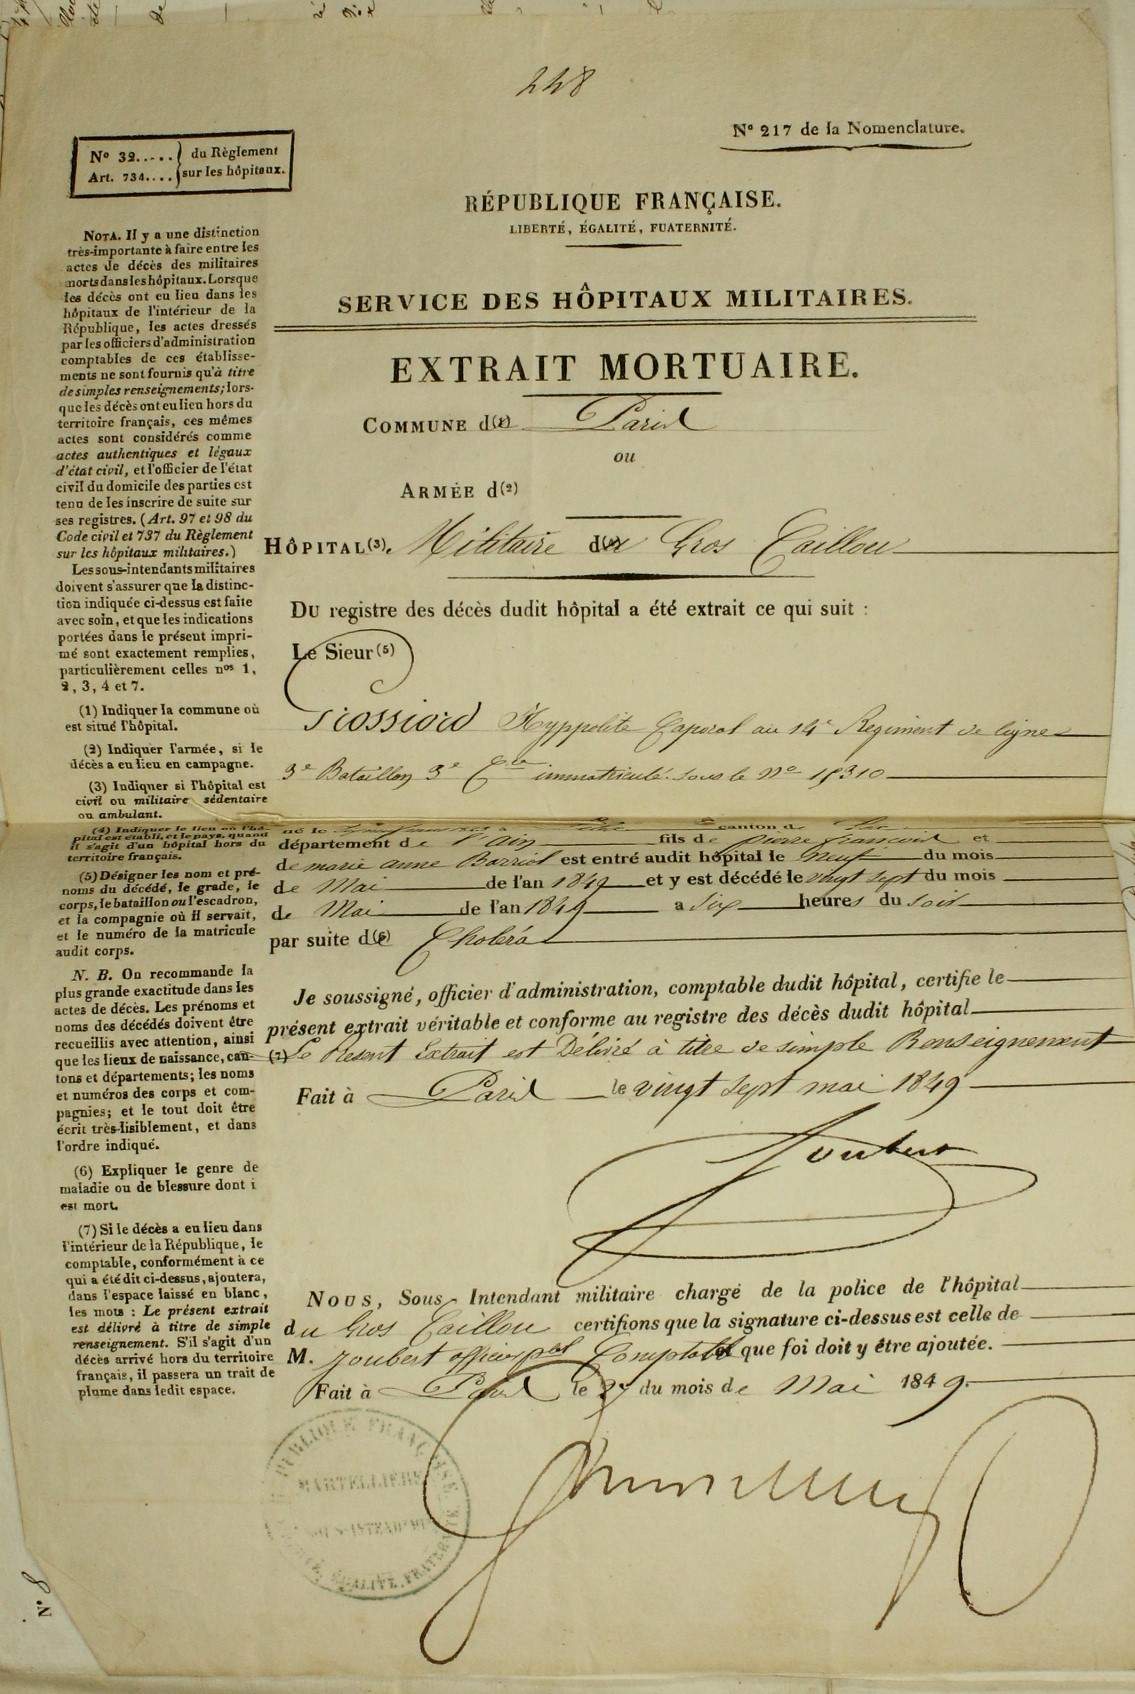 228
Nº 217 de la Nomenclature.
Nº 32..... du Règlement
Art. 734.... sur les hôpitaux.
RÉPUBLIQUE FRANÇAISE.
LIBERTÉ, ÉGALITÉ, FUATERNITÉ.
SERVICE DES HÔPITAUX MILITAIRES.
EXTRAIT MORTUAIRE.
COMMUNE d(1) Paris
ou
ARMÉE d(2)
HÔPITAL(3). Militaire d(4)u Gros Caillou
Du registre des décès dudit hôpital a été extrait ce qui suit :
Le Sieur(5)
Hyppolite Caporal au 14e Regiment de ligne
3e Bataillon 3e Cie immatriculé sous le Nº 18310
né le canton d
département de l'ain fils de pierre françois et
de marie anne est entré audit hôpital le neuf du mois
de Mai de l'an 1849 et y est décédé le vingt sept du mois
de Mai de l'an 1849 a six heures du soir
par suite d(6)e Choléra
Je soussigné, officier d'administration, comptable dudit hôpital, certifie le
présent extrait véritable et conforme au registre des décès dudit hôpital
(7) Le Present Extrait est Délivré à titre de simple Renseignement
Fait à Paris le vingt sept mai 1849
Joubert
NOUS, Sous-Intendant militaire chargé de la police de l'hôpital
du Gros Caillou certifions que la signature ci-dessus est celle de
M. Joubert officier pal Comptable et que foi doit y être ajoutée.
Fait à Paris le 27 du mois de Mai 1849.
RÉPUBLIQUE FRANÇAISE
MARTELLIÈRE
SOUS-INTENDANT
LIBERTÉ, ÉGALITÉ, FRATERNITÉ
NOTA. Il y a une distinction
très-importante à faire entre les
actes de décès des militaires
morts dans les hôpitaux. Lorsque
les décès ont eu lieu dans les
hôpitaux de l'intérieur de la
République, les actes dressés
par les officiers d'administration
comptables de ces établisse-
ments ne sont fournis qu'à titre
de simples renseignements; lors-
que les décès ont eu lieu hors du
territoire français, ces mêmes
actes sont considérés comme
actes authentiques et légaux
d'état civil, et l'officier de l'état
civil du domicile des parties est
tenu de les inscrire de suite sur
ses registres. (Art. 97 et 98 du
Code civil et 737 du Règlement
sur les hôpitaux militaires.)
Les sous-intendants militaires
doivent s'assurer que la distinc-
tion indiquée ci-dessus est faite
avec soin, et que les indications
portées dans le présent impri-
mé sont exactement remplies,
particulièrement celles nos 1,
2, 3, 4 et 7.
(1) Indiquer la commune où
est situé l'hôpital.
(2) Indiquer l'armée, si le
décès a eu lieu en campagne.
(3) Indiquer si l'hôpital est
civil ou militaire sédentaire
ou ambulant.
(4) Indiquer le lieu où l'hô-
pital est établi, et le pays, quand
il s'agit d'un hôpital hors du
territoire français.
(5) Désigner les nom et pré-
noms du décédé, le grade, le
corps, le bataillon ou l'escadron,
et la compagnie où il servait,
et le numéro de la matricule
audit corps.
N. B. On recommande la
plus grande exactitude dans les
actes de décès. Les prénoms et
noms des décédés doivent être
recueillis avec attention, ainsi
que les lieux de naissance, can-
tons et départements; les noms
et numéros des corps et com-
pagnies; et le tout doit être
écrit très-lisiblement, et dans
l'ordre indiqué.
(6) Expliquer le genre de
maladie ou de blessure dont i
est mort.
(7) Si le décès a eu lieu dans
l'intérieur de la République, le
comptable, conformément à ce
qui a été dit ci-dessus, ajoutera,
dans l'espace laissé en blanc,
les mots : Le présent extrait
est délivré à titre de simple
renseignement. S'il s'agit d'un
décès arrivé hors du territoire
français, il passera un trait de
plume dans ledit espace.
Nº 8